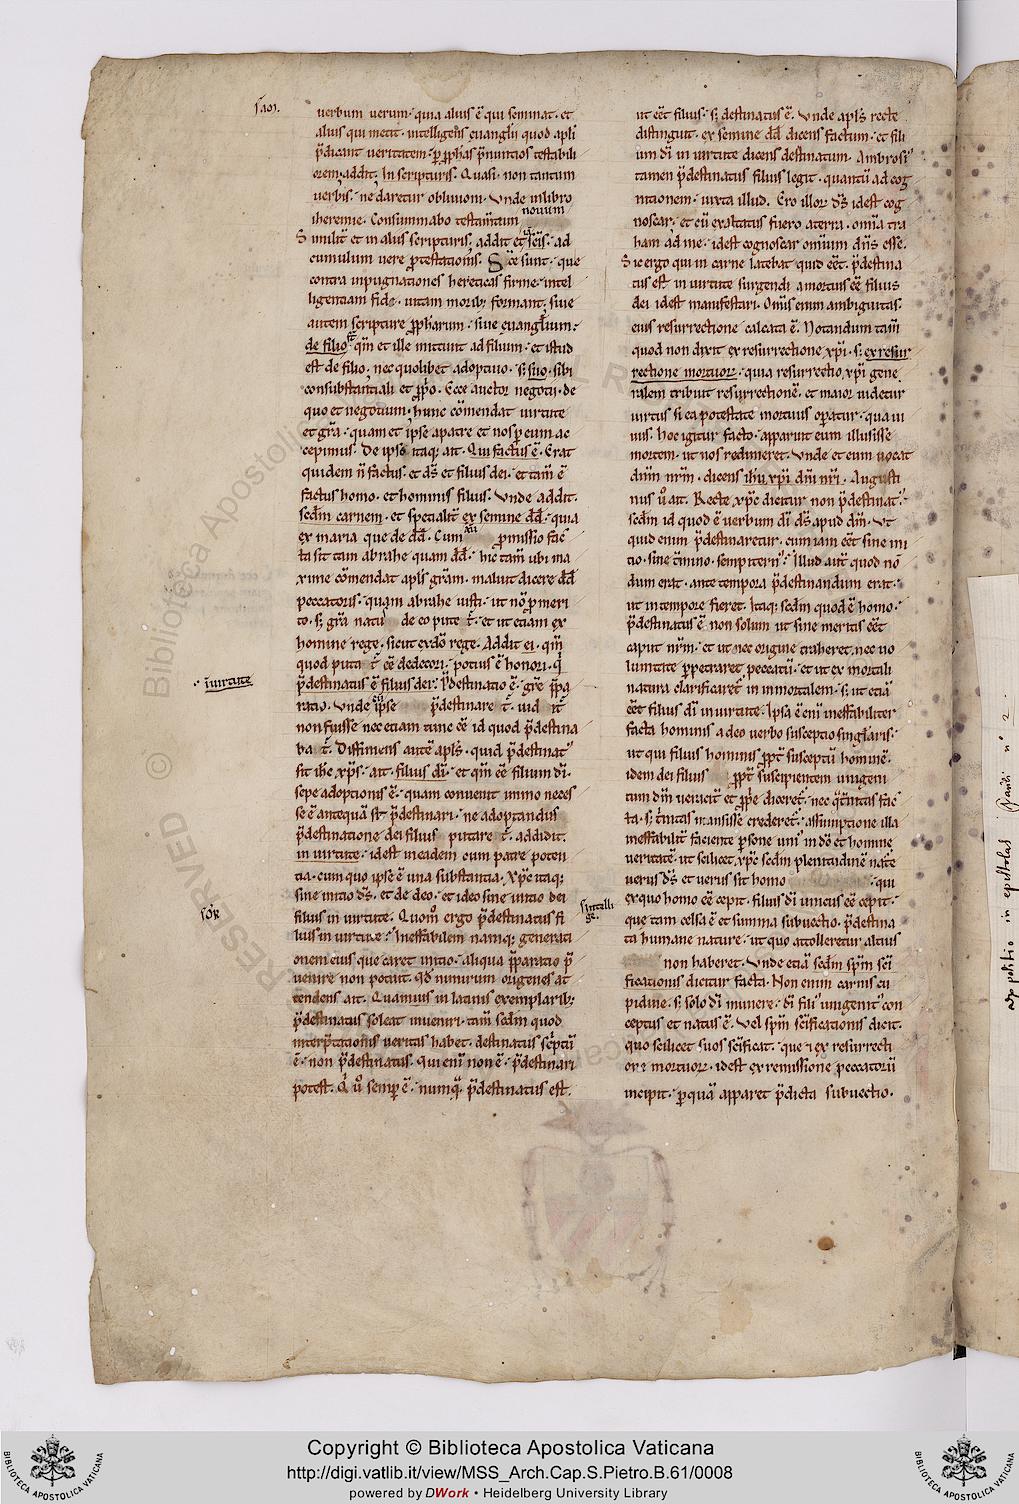 verbum verum· quia alius ē qui seminat· et
alius qui metit· intelligens̄ evanglii quod apl̄i
p̄dicant veritatem· ꝑ ꝓphas p̄nuntios testabili
orem, addit, In scripturis. Quasi· non tantum
verbis· ne daretur oblivioni· Unde in libro
iheremie. Consummabo testam̄tum novum
Similit̄ et in aliis scripturis, addit et sc̄is· ad
cumulum vere ꝓtestationis. Sc̄e sunt· que
contra inpugnationes hereticas firme· intel
ligentiam fidei· vitam morib; formant; sive
autem scripture ꝓpharum· sive evangl̄ium·
de filio· qm̄ et ille mittunt ad filium· et istud
est de filio, nec quolibet adoptivo· s; suo, sibi
consubstantiali et ꝓp̄o. Ecce auctor negotii, de
quo et negotium, hunc cōmendat virtute
et gr̄a· quam et ipse a patre et nos ꝑ eum ac
cepimus. De ipso itaq; ait. Qui factus ē. Erat
quidem n̄ factus· et ds̄ et filius dei· et tam̄ ē
factus homo· et hominis filius. Unde addit.
secdm̄ carnem· et specialit̄ ex semine dd̄· quia
ex maria que de dd̄. Cum ꝓmissio fac̄
ta sit tam abrahe quam dd̄· hic tam̄ ubi ma
xime cōmendat apl̄s gr̄am· maluit dicere dd̄
peccatoris· quam abrahe iusti· ut nō ꝓ meri
to· s; gr̄a natus de eo putetr̄· et ut etiam ex
homine rege· sicut ex dō rege. Addit ei· qm̄
quod putatr̄ eē dedecori· potius ē honori· q
p̄destinatus ē filius dei· P̄destinatio ē· gr̄e p̄pa
ratio. Unde ipse p̄destinare
non fuisse nec etiam tunc eē id quod p̄destina
batr̄. Diffiniens autē apl̄s· quid p̄destinat᷒
sit ih̄c xp̄s· ait· filius di̅· et qm̄ eē filium di̅·
sepe adoptionis ē· quam convenit immo neces
se ē antequā st̄ p̄destinari· ne adoptandus
p̄destinatione dei filius putaretr̄· addidit.
in virtute· idest in eadem cum patre poten
tia· cum quo ipse ē una substantia. Xp̄c itaq;
sine initio ds̄, et de deo· et ideo sine initio dei
filius in virtute. Quom̊ ergo p̄destinatus fi
lius in virtute· Ineffabilem namq; generati
onem eius que caret initio· aliqua p̄paratio p̄
venire non potuit· qd̄ nimirum origenes at
tendens ait. Quamvis in latinis exemplarib;
p̄destinatus soleat inveniri· tam̄ secdm̄ quod
interp̄tationis veritas habet· destinatus sc̄ptū
ē· non p̄destinatus. qui enī non ē· p̄destinari
potest. Q̊ v̊ semp̄ ē· numq̄ p̄destinatus est.
in virtute
ut eēt filius· s; destinatus ē. Unde apl̄s recte
distinguit· ex semine dd̄ dicens factum· et fili
um di̅ in virtute dicens destinatum. Ambrosi᷒
tamen p̄destinatus filius legit· quantū ad cog
nitionem· iuxta illud. Ero illor̄ ds̄ idest cog
noscar· et cū exaltatus fuero a terra· omīa tra
ham ad me· idest cognoscar omnium dn̄s esse.
Sic ergo qui in carne latebat quid eēt· p̄destina
tus est in virtute surgendi a mortuis eē filius
dei idest manifestari. Omīs enim ambiguitas.
eius resurrectione calcata ē. Notandum tam̄
quod non dixit ex resurrectione xp̄i· s; ex resur
rectione mortuor̄· quia resurrectio xp̄i gene
ralem tribuit resurrectionē· et maior videtur
virtus si ea potestate mortuus operatur· qua vi
vus· hoc igitur facto· apparuit eum illusisse
mortem· ut nos redimeret. Unde et eum vocat
dn̄m nr̄m· dicens ih̄u xp̄i dn̄i nr̄i. Augusti
nus v̊ ait. Recte xp̄c dicitur non p̄destinat᷒·
secdm̄ id quod ē verbum di̅ ds̄ apud dm̄. Ut
quid enim p̄destinaretur· cum iam eēt sine ini
tio, sine t̄mino· sempitern᷒· Illud aut̄ quod nō
dum erat· ante tempora p̄destinandum erat·
ut in tempore fieret. Itaq; secdm̄ quod ē homo·
p̄destinatus ē non solum ut sine meritis eēt
caput nr̄m· et ut nec origine traheret, nec vo
luntate ꝑpetraret peccatū· et ut ex mortali
natura clarificaretr̄ in inmortalem· s; ut etiā
eēt filius di̅ in virtute. Ipsa ē enī ineffabiliter
facta hominis a deo verbo susceptio singl̄aris·
ut qui filius hominis ꝓpt̄ susceptū hominē·
idem dei filius ꝓpt̄ suscipientem unigeni
tum dm̄ veracit̄ et ꝓp̄e diceretr̄· nec q̄t̄nitas fac̄
ta· s; t̄nitas mansisse crederetr̄· assumptione illa
ineffabilit̄ faciente ꝑsone uni᷒ in dō et homine
veritatē· ut scilicet xp̄c secdm̄ plenitudinē nat̄e
verus ds̄ et verus sit homo · qui
ex quo homo eē cepit· filius di̅ unicus eē cepit·
que tam celsa ē et summa subvectio· p̄destina
ta humane nature· ut quo attolleretur altius
non haberet. Unde etiā secdm̄ sp̄m sc̄i
ficationis dicitur facta. Non enim carnis cu
pidine· s; solo di̅ munere· di̅ fili᷒ unigenit᷒ con
ceptus et natus ē. Vel sp̄m sc̄ificationis dicit·
quo scilicet suos sc̄ificat· que ex resurrecti
one mortuor̄· idest ex remissione peccatorū
incipit· ꝑ quā apparet p̄dicta subvectio.
© Biblioteca Apostolica
RESERVED
Copyright © Biblioteca Apostolica Vaticana
http://digi.vatlib.it/view/MSS_Arch.Cap.S.Pietro.B.61/0008
powered by DWork • Heidelberg University Library
BIBLIOTECA APOSTOLICA VATICANA
BIBLIOTECA APOSTOLICA VATICANA